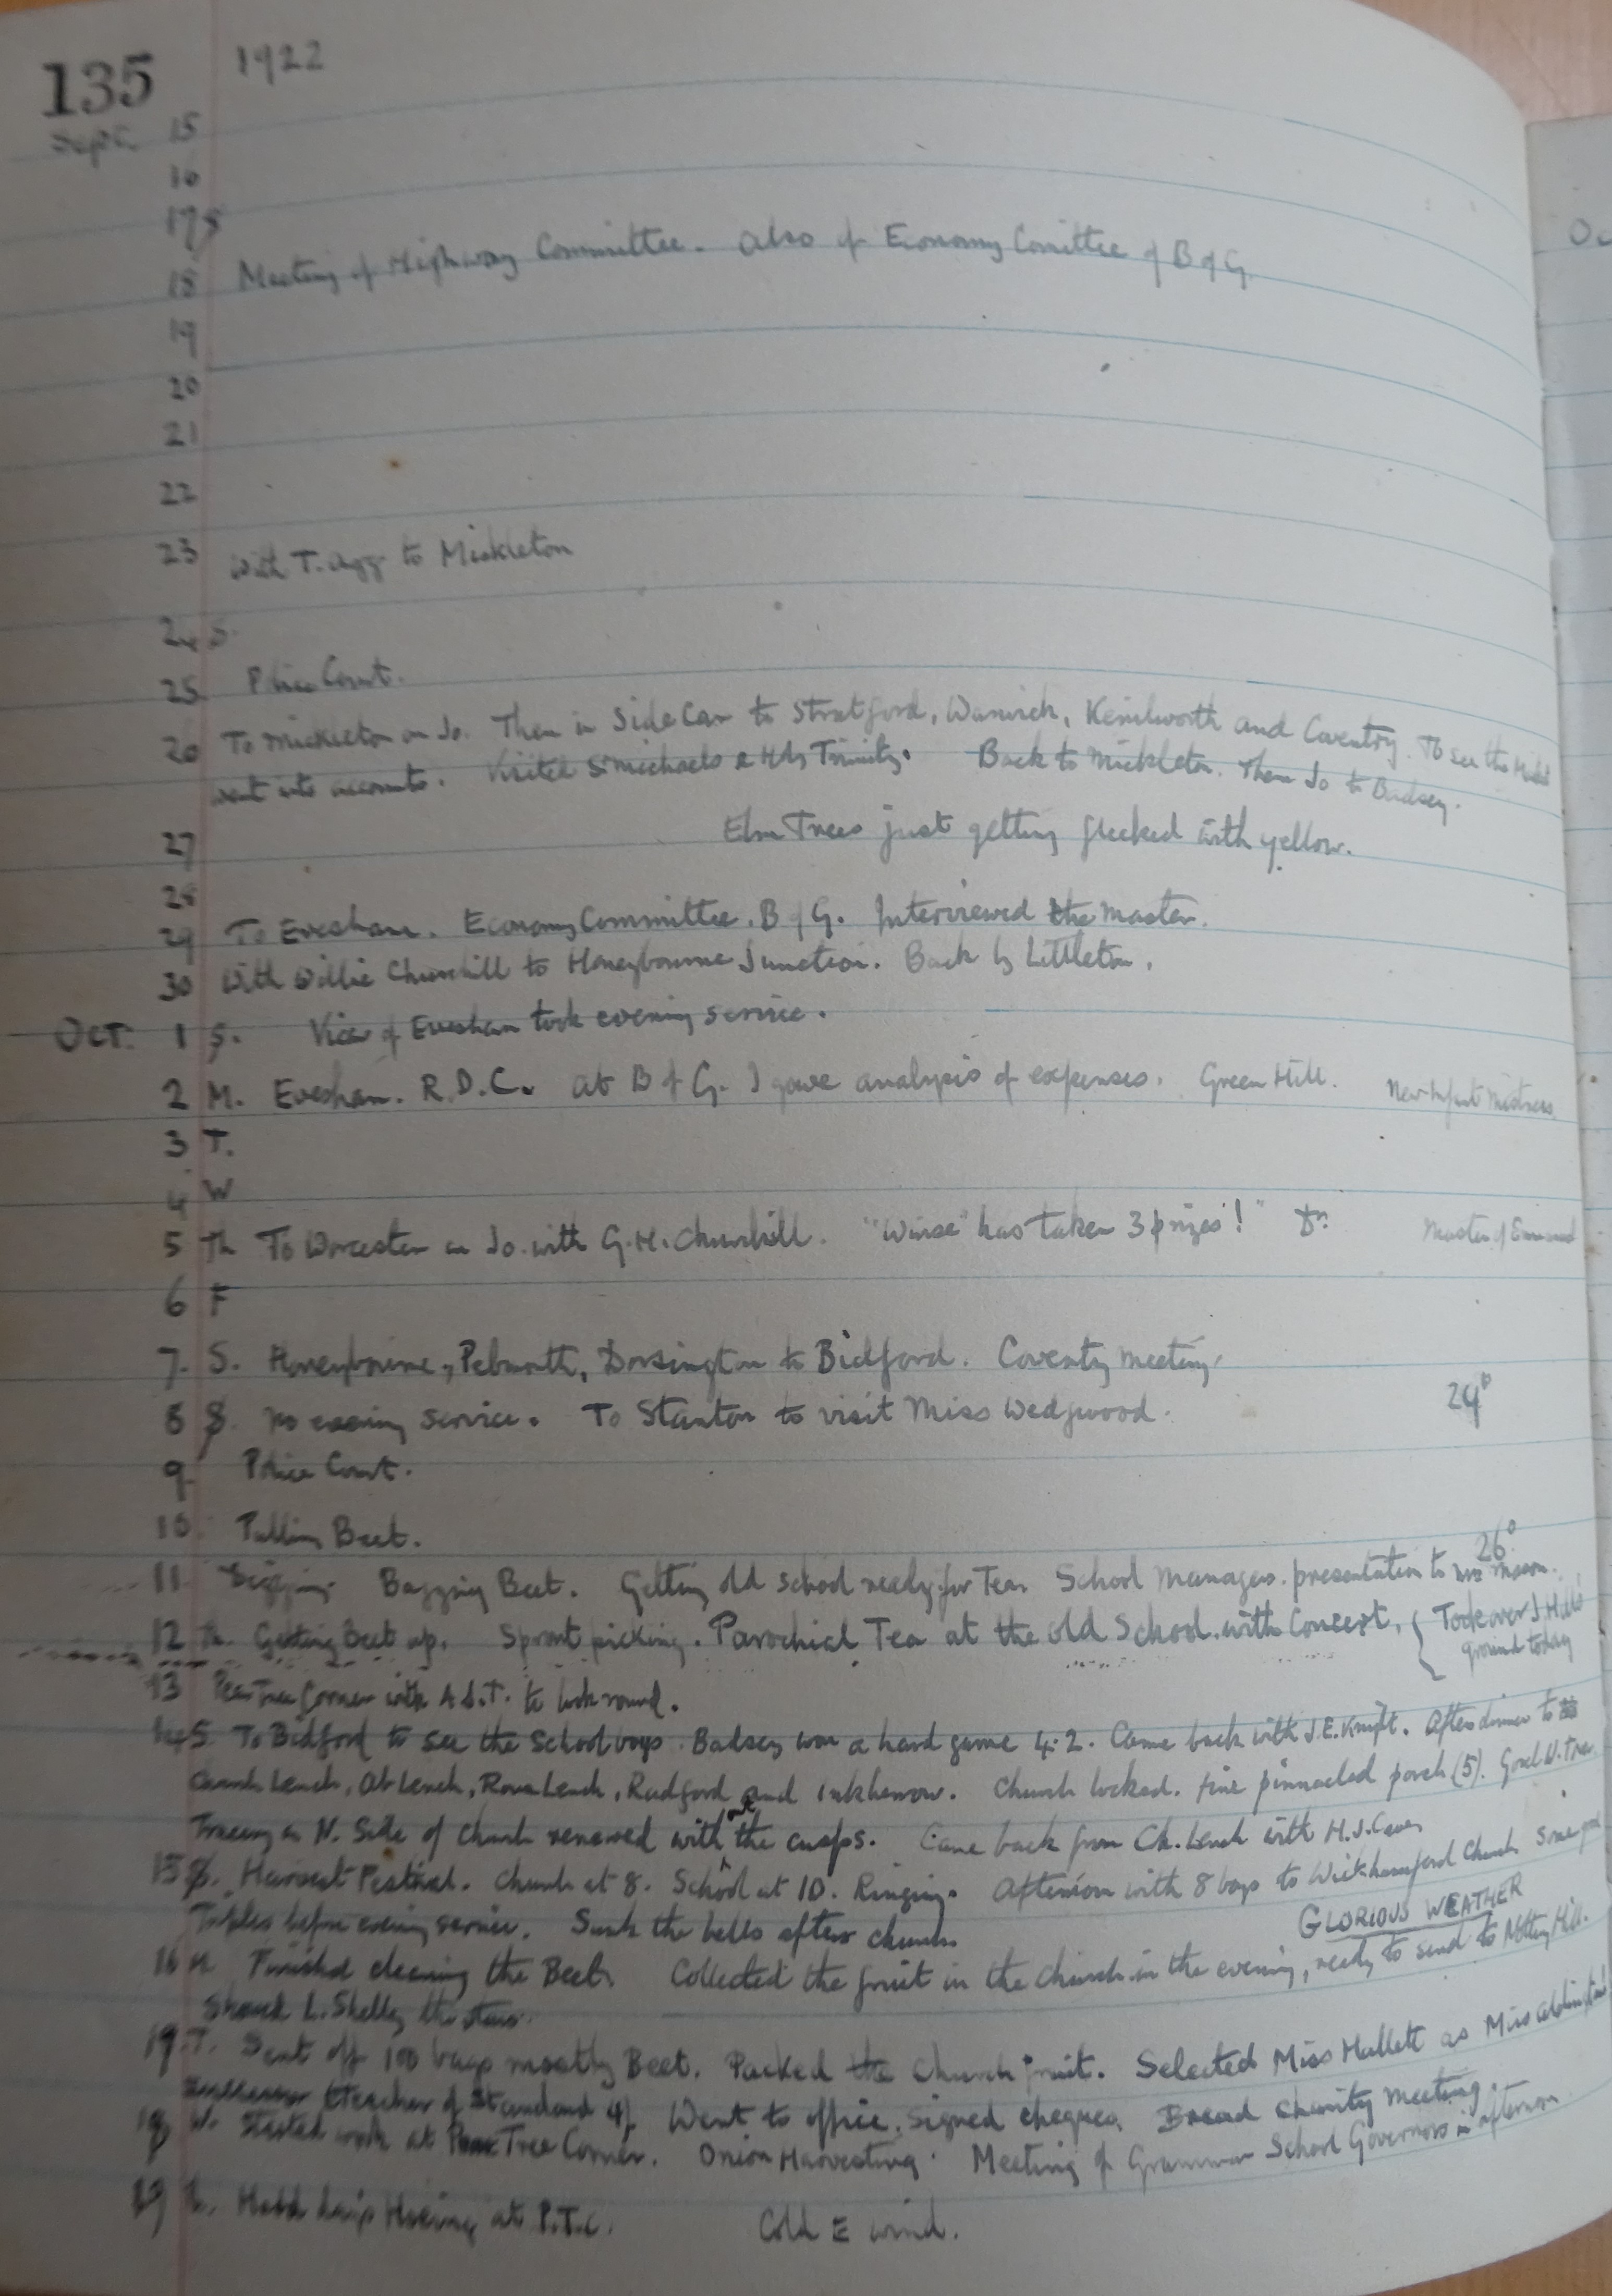 135 1922
Sept. 15
16
17 S
18 Meeting of Highway Committee. Also of Economy Comittee of B of G.
19
20
21
22
23 With T. Agg to Mickleton
24 S.
25 Police Court.
26 To Mickleton on Jo. Then in Side Car to Stratford, Warwick, Kenilworth and Coventry. To see the
went into accounts. Visited St Michaels & Holy Trinity. Back to Mickleton. Then Jo to Badsey.
27 Elm Trees just getting flecked with yellow.
28
29 To Evesham. Economy Committee. B of G. Interviewed the Master.
30 With Willie Churchill to Honeybourne Junction. Back by Littleton.
Oct. 1 S. Vicar of Evesham took evening service.
2 M. Evesham. R.D.C. At B of G. I gave analysis of expenses. Green Hill. New Infant Mistress
3 T.
4 W
5 Th To Worcester on Jo. with G.H. Churchill. "Winse" has taken 3 prizes! Master of
6 F
7. S. Honeybourne, Pebworth, Dorsington to Bidford. Coventry meeting
8 S. No evening service. To Stanton to visit Miss Wedgwood. 29°
9 Police Court.
10 Pulling Beet.
26°
11 Digging. Bagging Beet. Getting old school ready for Tea. School Managers. presentation to
12 Th. Getting Beet up. Sprout picking. Parochial Tea at the old School. with Concert. { Took over J. Hill's
ground today
13 Pear Tree Corner with A.S.T. to look round.
14 S. To Bidford to see the School boys. Badsey won a hard game 4.2. Came back with J.E. Knight. After dinner to
Church Lench, Ab Lench, Rous Lench, Radford and Inkberrow. Church locked. Fine pinnacled porch (5). Good W.
Tracery on N. Side of Church renewed without the cusps. Came back from Ch. Lench with H.J.
15 S. Harvest Festival. Church at 8. School at 10. Ringing. Afternoon with 8 boys to Wickhamford Church. Some good
Triples before evening service. Sunk the bells after church. GLORIOUS WEATHER
16 M. Finished cleaning the Beet. Collected the fruit in the church in the evening, ready to send to Notting Hill.
Showed L. Shelley the stars.
17. T. Sent off 100 bags mostly Beet. Packed the Church fruit. Selected Miss Hallett as Miss
successor (teacher of Standard 4). Went to office. Signed cheques. Bread Charity meeting.
18 W. Started work at Pear Tree Corner. Onion Harvesting. Meeting of Grammar School Governors in afternoon
19 Hoeing at P.T.C. Cold E wind.